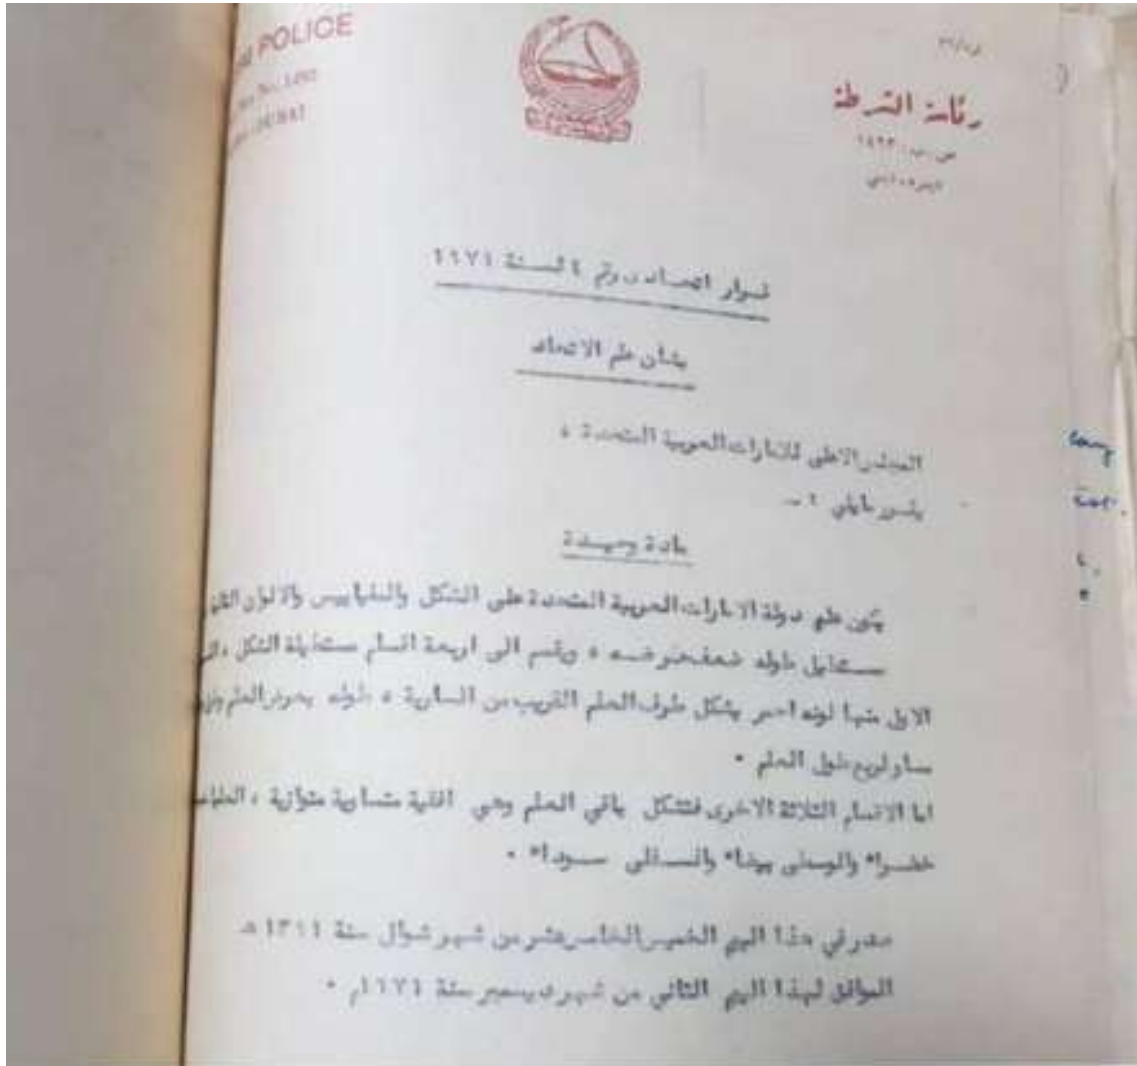 POLICE
DUBAI
رئاسة الشرطة
ص . ب . ١٤٩٣
قرار اتحادي رقم ٤ لسنة ١٩٧١
بشأن علم الاتحاد
المجلس الاعلى للامارات العربية المتحدة ،
يقرر مايلي : -
مادة وحيدة
يكون علم دولة الامارات العربية المتحدة على الشكل والمقاييس والالوان
مستطيل طوله ضعف عرضه ، ويقسم الى اربعة اقسام مستطيلة الشكل ،
الاول منها لونه احمر يشكل طرف العلم القريب من السارية ، طوله بعرض العلم
مساو لربع طول العلم .
اما الاقسام الثلاثة الاخرى فتشكل باقي العلم وهي افقية متساوية متوازية ،
خضراء والوسطى بيضاء والسفلى سوداء .
صدر في هذا اليوم الخميس الخامس عشر من شهر شوال سنة ١٣٩١ هـ
الموافق لهذا اليوم الثاني من شهر ديسمبر سنة ١٩٧١م .